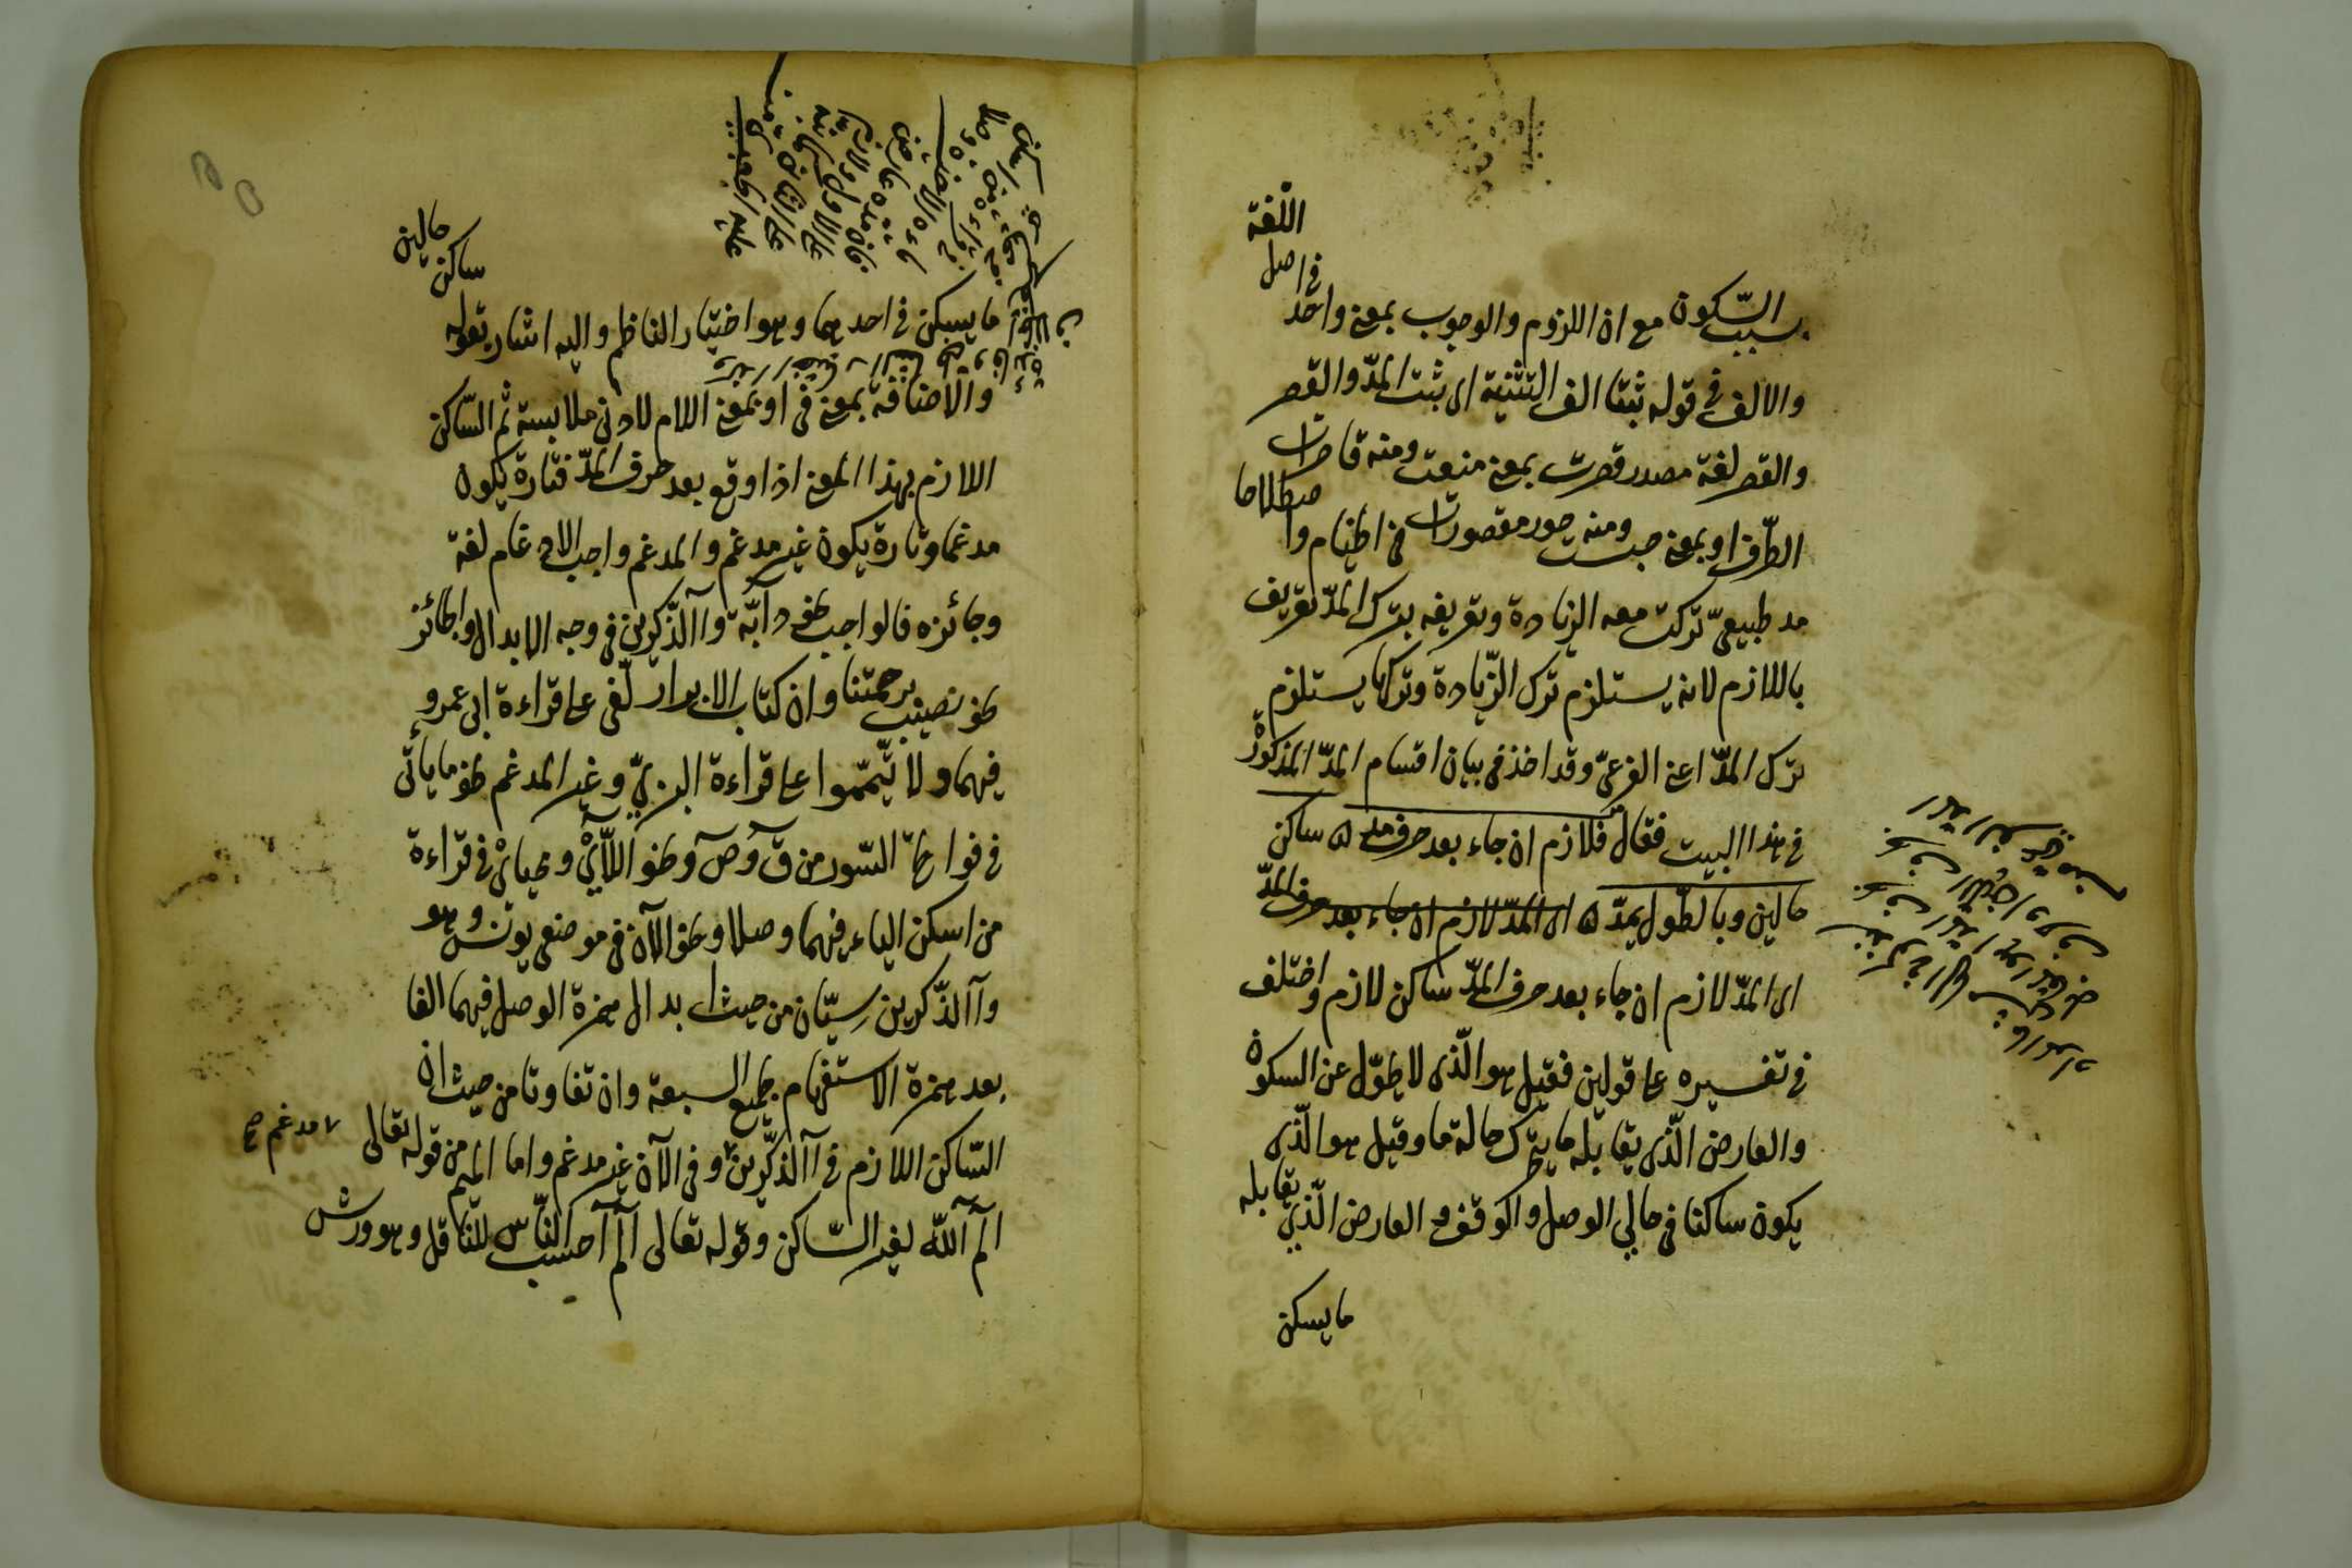 بسبب السّكون مع ان اللزوم والوجوب بمعنى واحد فى اصل اللّغة
والالف فى قوله ثبتا الف التثنية اى ثبت المدّ والقصر
والقصر لغة مصدر قصرت بمعنى منعت ومنه قاصرات
الطّرف او بمعنى حبست ومنه حور مقصورات فى الخيام واصطلاحا
مد طبيعىّ تركت معه الزيادة وتعريفه بترك المدّ تعريف
باللازم لانه يستلزم ترك الزّيادة وتركها يستلزم
ترك المدّ اعنى الفرعىّ وقد اخذ فى بيان اقسام المدّ المذكور
فى هذا البيت فقال فلازم ان جاء بعد حرف مد ه ساكن
حالين وبالطّول يمدّ ه اى المدّ لازم ان جاء بعد حرف المدّ
اى المدّ لازم ان جاء بعد حرف المدّ ساكن لازم واختلف
فى تفسيره على قولين فقيل هو الّذى لا يتحوّل عن السكون
والعارض الّذى يقابله ما يتحرك حالة ما وقيل هو الّذى
يكون ساكنا فى حالي الوصل والوقف والعارض الّذي يقابله
ما يسكن
ساكن حالين
ما يسكن فى احدهما وهو اختيار الناظم واليه اشار بقوله
والاضافة بمعنى فى او بمعنى اللام لادنى ملابسة ثم السّاكن
اللازم بهذا المعنى اذا وقع بعد حرف المدّ فتارة يكون
مدغما وتارة يكون غير مدغم والمدغم واجب الادغام لغة
وجائزه فالواجب نحو دآبّة وآالذّكرين فى وجه الابدال والجائز
نحو نصيب برحمتنا وان كتاب الابرار لفى على قراءة ابى عمرو
فيهما ولا تّيمّموا على قراءة البزيّ وغير المدغم نحو ما يأتى
فى فواتح السّور من ق وص ونحو اللّآيْ ومحياىْ فى قراءة
من اسكن الياء فيهما وصلا ونحو الآن فى موضعى يونس وهو
وآالذّكرين سيّان من حيث ابدال همزة الوصل فيهما الفا
بعد همزة الاستفهام لجميع السبعة وان تفاوتا من حيث ان
السّاكن اللازم فى آالذّكّرين وفى الآن غير مدغم واما الميم من قوله تعالى
مدغم صح
الم آللّه لغير السّاكن وقوله تعالى الم احسب النّاس للنّاقل وهو ورش